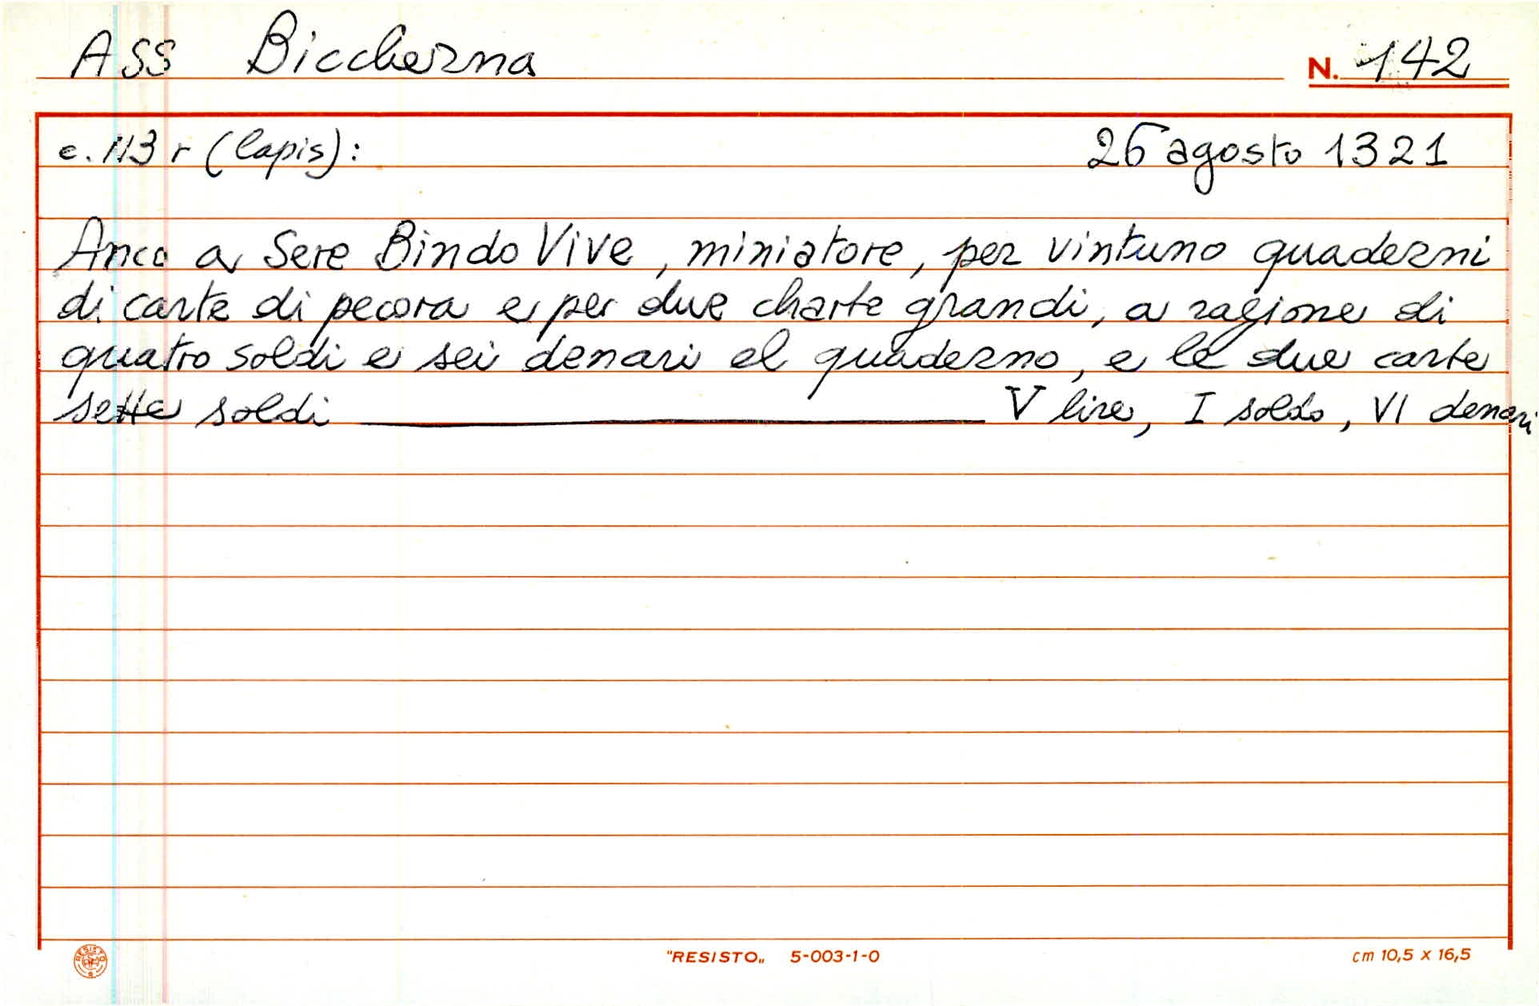 ASS Biccherna N. 142
c. 113 r (lapis): 26 agosto 1321
Anco a Sere Bindo Vive, miniatore, per vintuno quaderni
di carte di pecora e per due charte grandi, a ragione di
quatro soldi e sei denari el quaderno, e le due carte
sette soldi V lire, I soldo, VI denari
RESISTO "RESISTO„ 5-003-1-0 cm 10,5 x 16,5